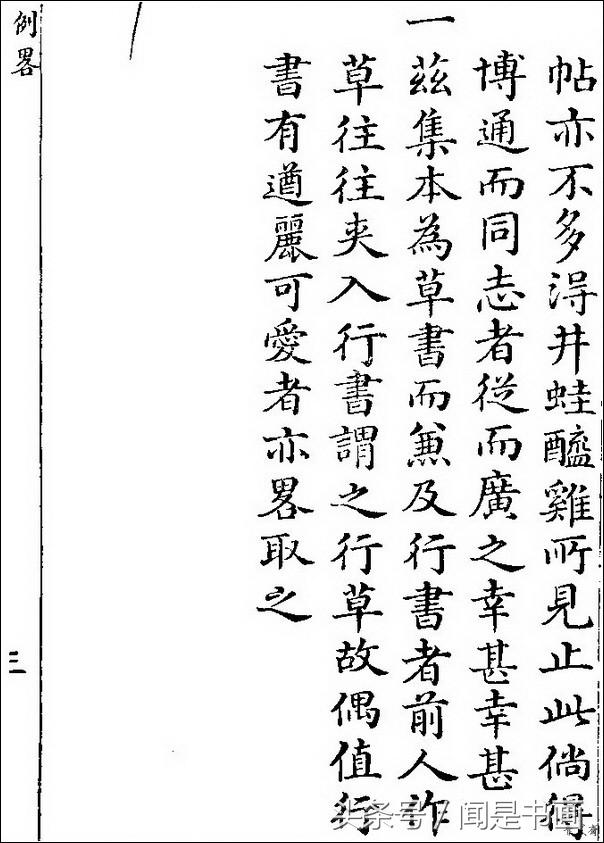 帖亦不多淂井蛙醯雞所見止此倘得
博通而同志者從而廣之幸甚幸甚
一茲集本為草書而兼及行書者前人作
草往往夾入行書謂之行草故偶值行
書有遒麗可愛者亦畧取之
例畧
三
头条号/闻是书画